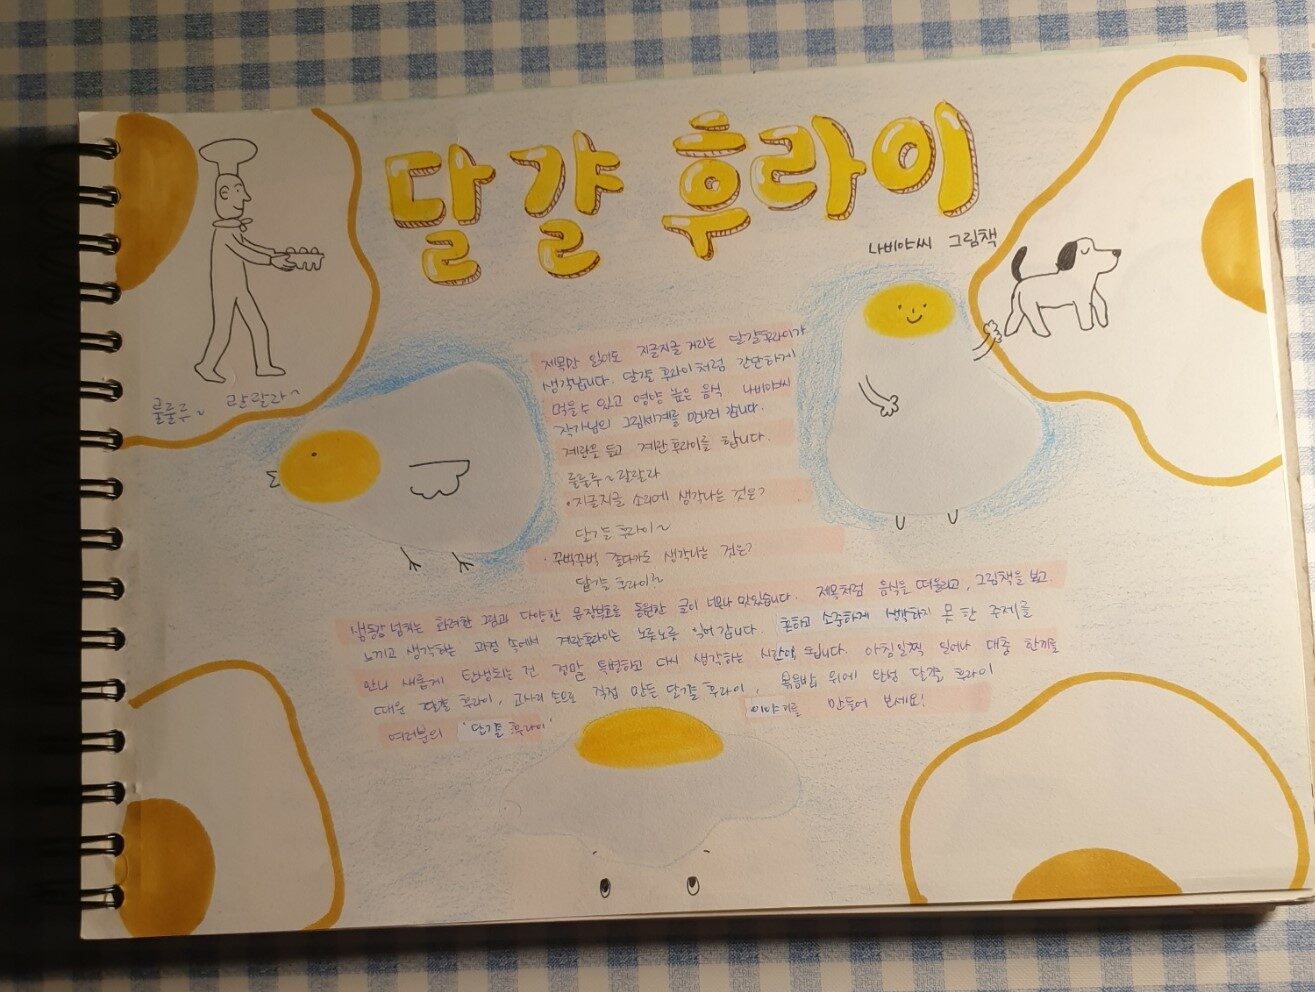 달걀 후라이
나비야씨 그림책
룰룰루~ 랄랄라~
제목만 읽어도 지글지글 거리는 달걀후라이가
생각납니다. 달걀 후라이처럼 간단하게
먹을 수 있고 영양 높은 음식 나비야씨
작가님의 그림세계를 만나러 갑니다.
계란을 들고 계란후라이를 합니다.
룰룰루~랄랄라
•지글지글 소리에 생각나는 것은?
달걀 후라이~
·꾸벅꾸벅 졸다가도 생각나는 것은?
달걀 후라이~
생동감 넘치는 화려한 그림과 다양한 문장부호로 동원한 글이 너무나 맛있습니다. 제목처럼 음식을 떠올리고, 그림책을 보고
느끼고 생각하는 과정 속에서 계란후라이는 노릇노릇 익어 갑니다. 흔하고 소중하게 생각하지 못 한 주제를
만나 새롭게 탄생되는 건 정말 특별하고 다시 생각하는 시간이 됩니다. 아침일찍 일어나 대충 한끼를
때운 달걀 후라이, 고사리 손으로 직접 만든 달걀 후라이, 볶음밥 위에 완성 달걀 후라이
여러분의 '달걀 후라이' 이야기를 만들어 보세요!